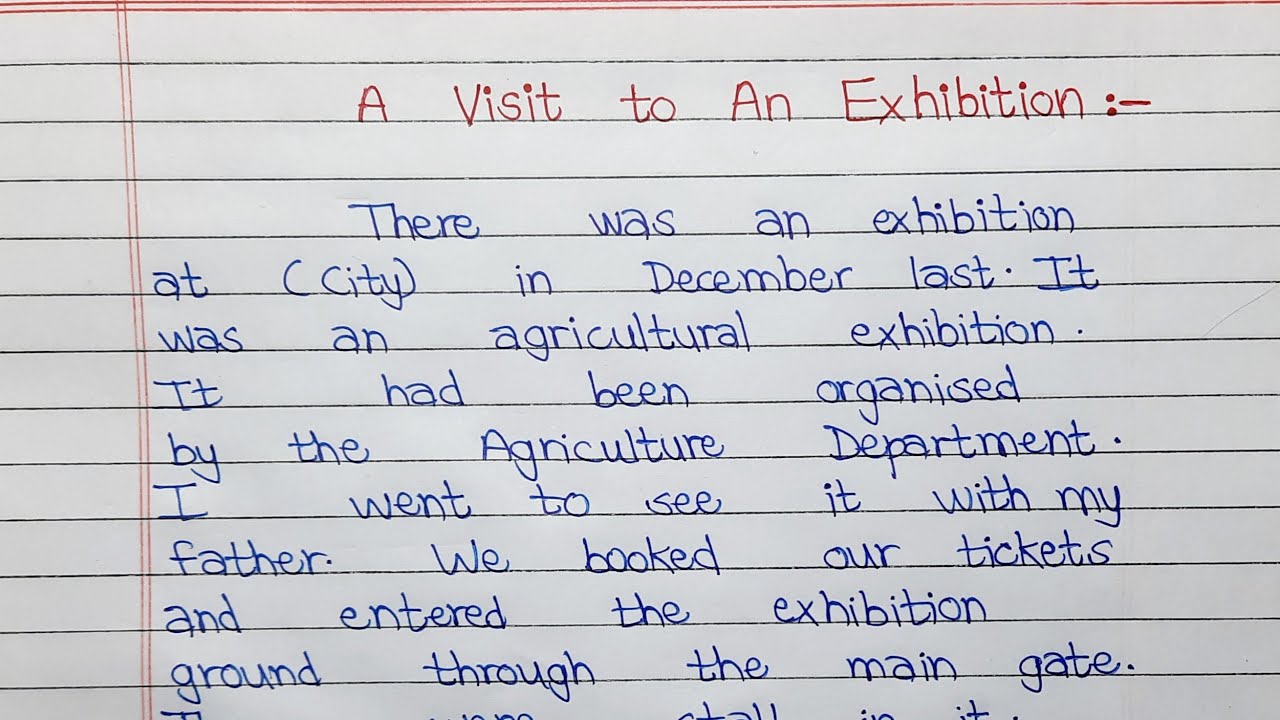 A Visit to An Exhibition :-
There was an exhibition
at (City) in December last. It
was an agricultural exhibition.
It had been organised
by the Agriculture Department.
I went to see it with my
father. We booked our tickets
and entered the exhibition
ground through the main gate.
stall in it.